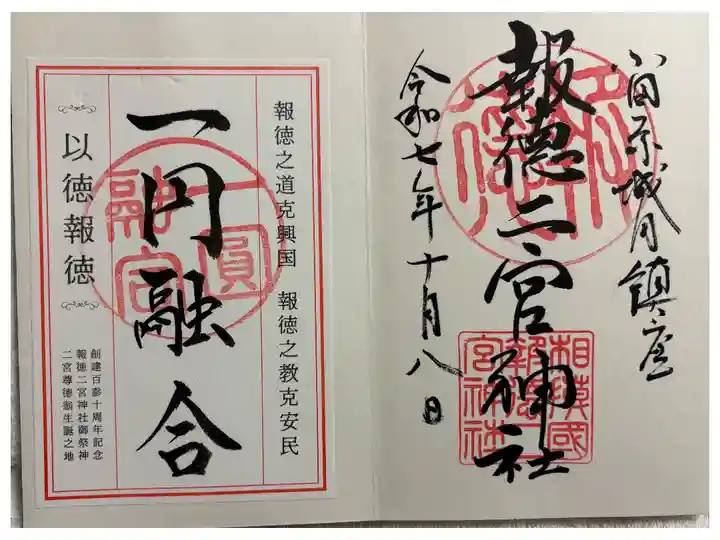 小田原城内鎮座
報徳二宮神社
相模國報徳二宮神社
令和七年十月八日
報徳之道克興国 報徳之教克安民
一円融合
一圓融合
以徳報徳
創建百参十周年記念
報徳二宮神社御祭神
二宮尊徳翁生誕之地